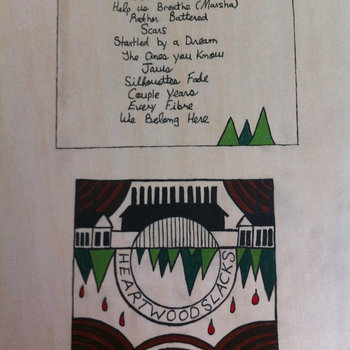 Help us Breathe (Marsha)
Rather Battered
Scars
Startled by a Dream
The Ones you Know
Jaws
Silhouettes Fade
Couple Years
Every Fibre
We Belong Here
HEARTWOODSLACKS